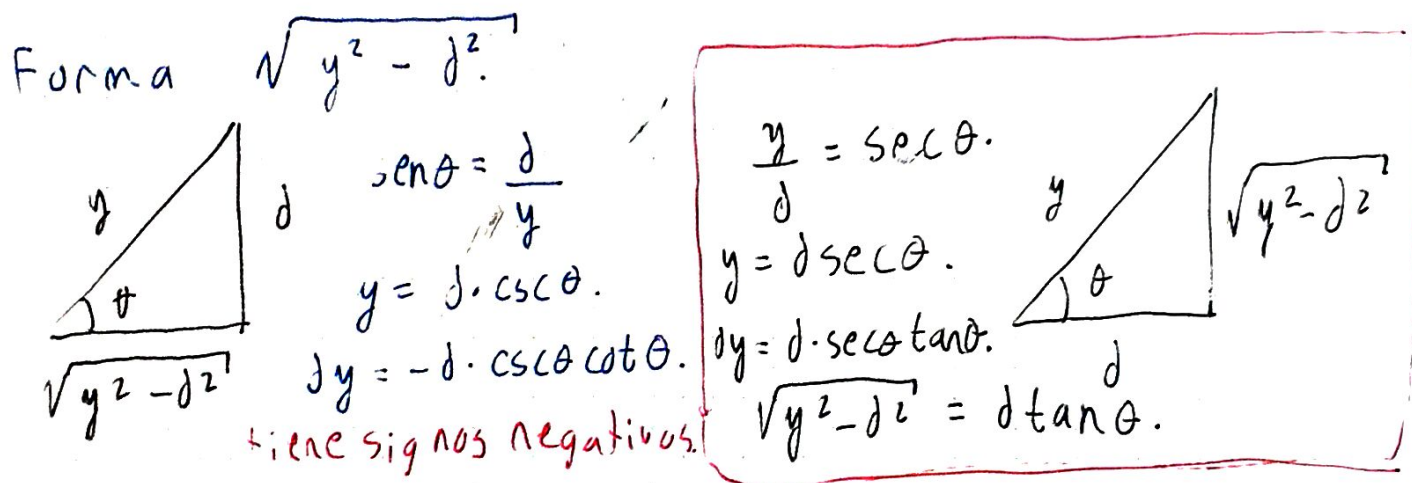 Forma √(y² - d²).
y
d
θ
√(y² - d²)
senθ = d/y
y = d·cscθ.
dy = -d·cscθ cotθ.
tiene signos negativos.
y/d = secθ.
y = d secθ.
dy = d·secθ tanθ.
√(y² - d²) = d tanθ.
y
θ
√(y² - d²)
d